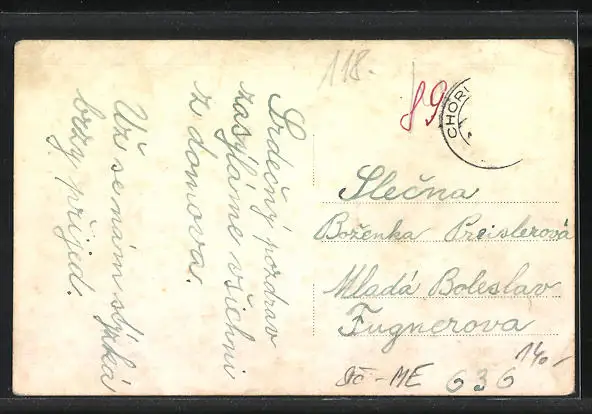 118.
89
CHOR
Srdečný pozdrav
zasýláme všichni
z domova.
Už se nám stýská
brzy přijed.
Slečna
Boženka Preislerová
Mladá Boleslav
Fugnerova
Oč - ME 636 140,-